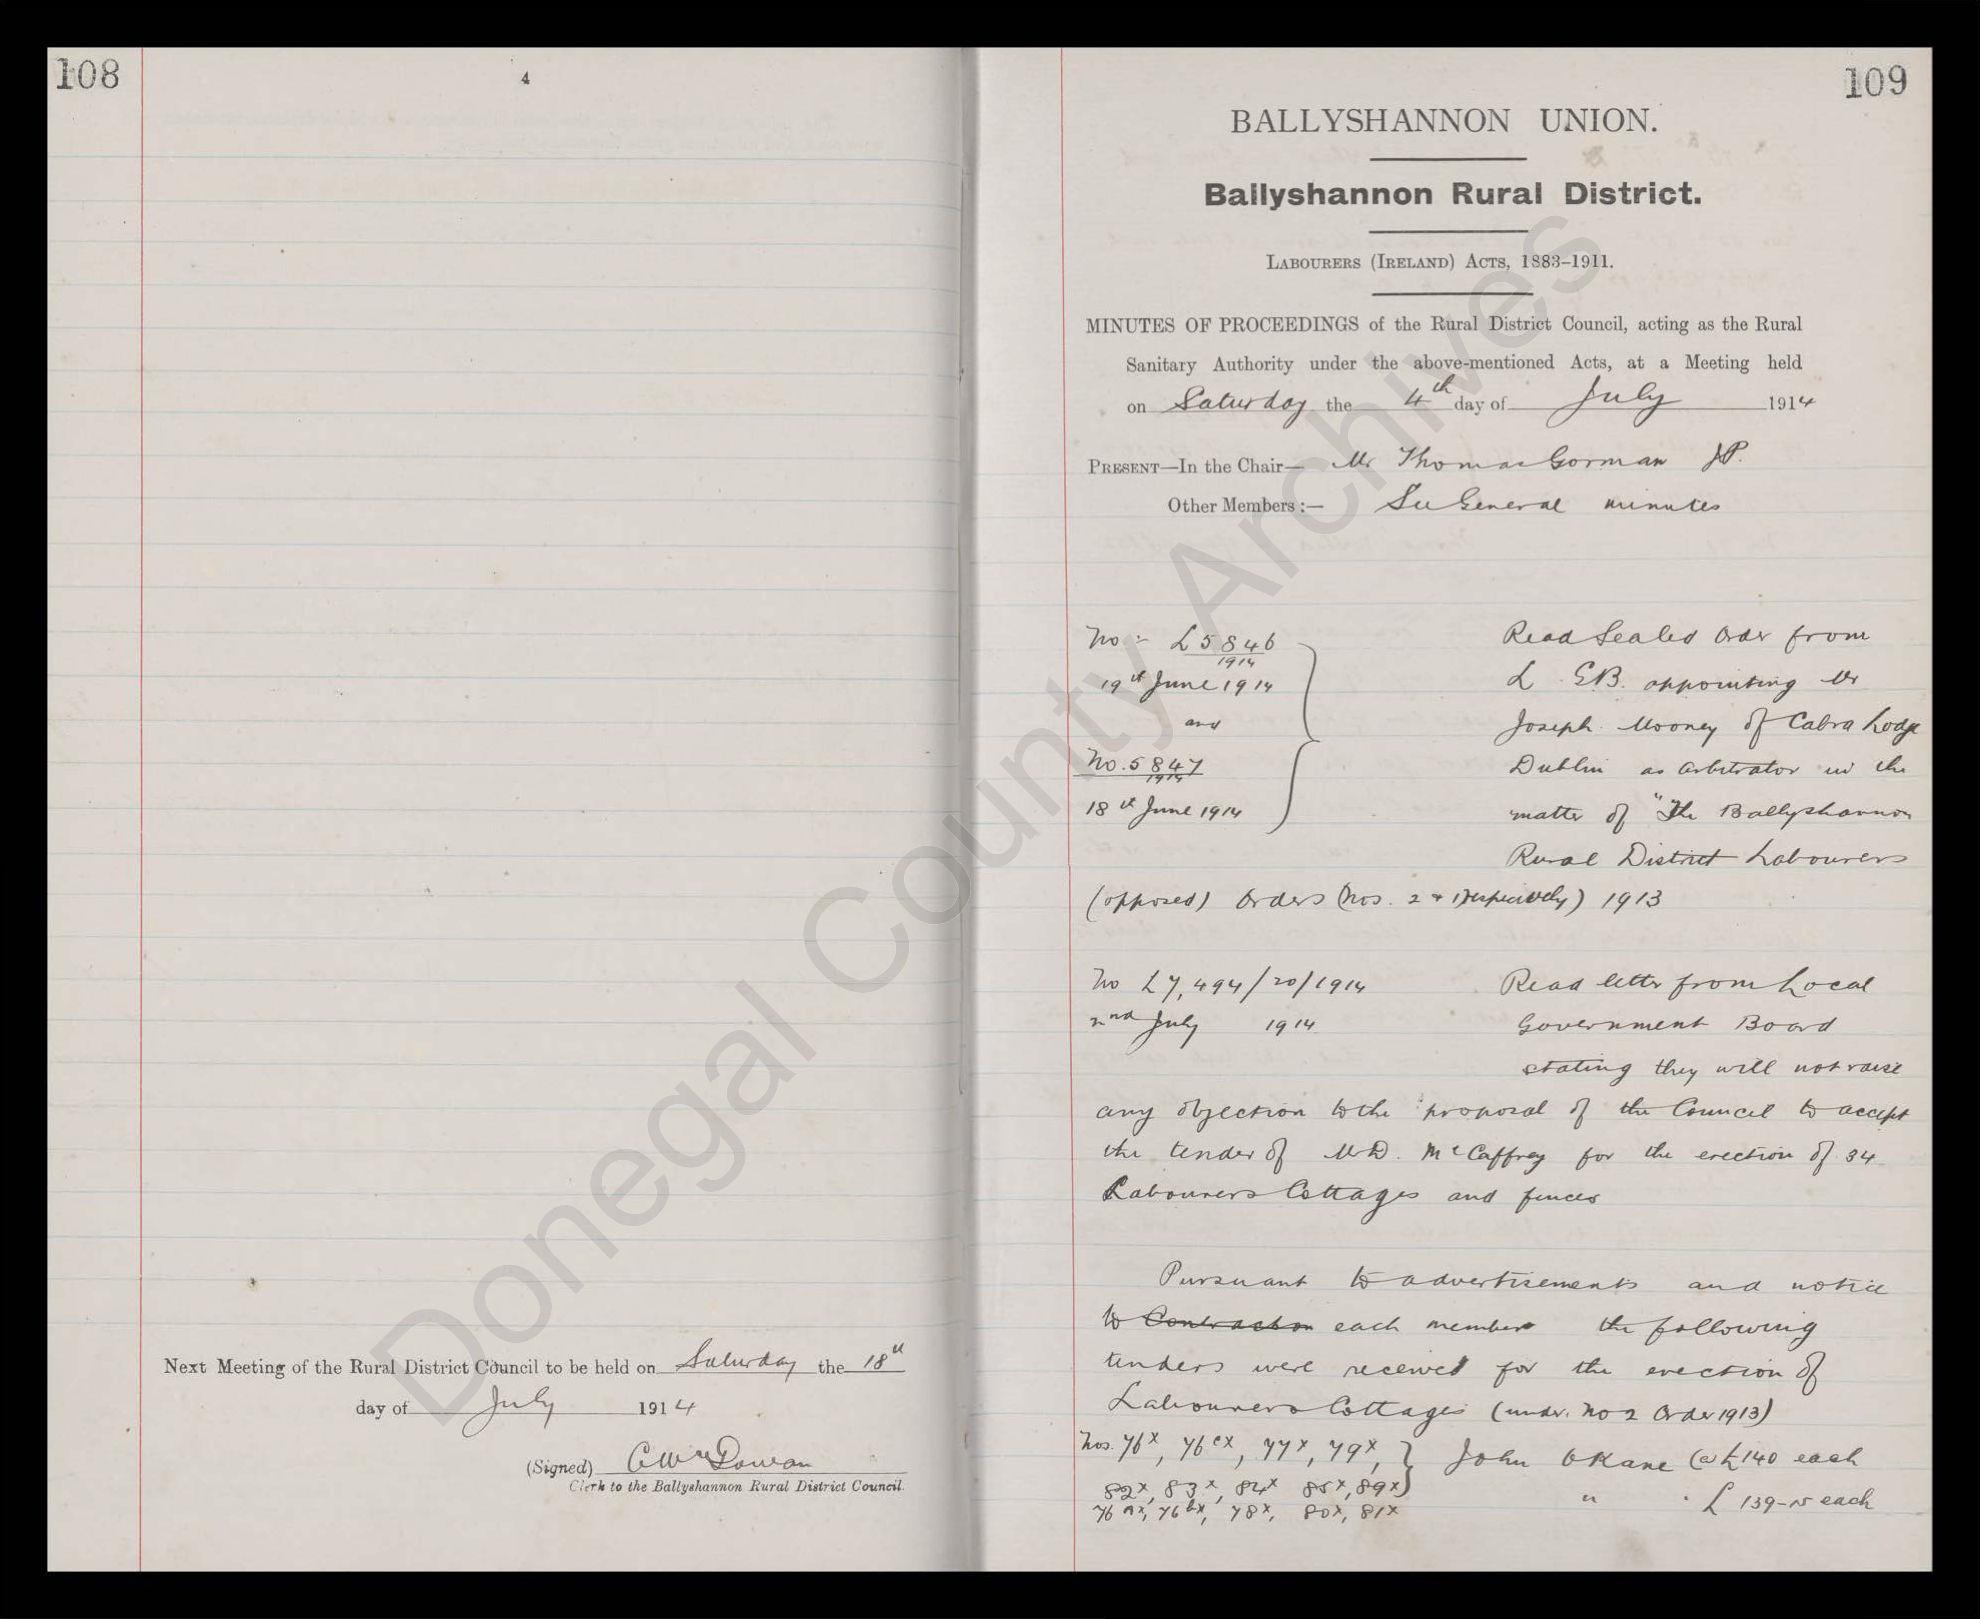 108
4
Next Meeting of the Rural District Council to be held on Saturday the 18th
day of July 1914
(Signed) C W McGowan
Clerk to the Ballyshannon Rural District Council.
109
BALLYSHANNON UNION.
Ballyshannon Rural District.
LABOURERS (IRELAND) ACTS, 1883-1911.
MINUTES OF PROCEEDINGS of the Rural District Council, acting as the Rural
Sanitary Authority under the above-mentioned Acts, at a Meeting held
on Saturday the 4th day of July 1914
PRESENT—In the Chair— Mr Thomas Gorman J.P.
Other Members :— See General minutes
No :- L 5846
1914
19th June 1914
and
No. 5847
1914
18th June 1914
Read Sealed Order from
L G.B. appointing Mr
Joseph Mooney of Cabra Lodge
Dublin as Arbitrator in the
matter of "The Ballyshannon
Rural District Labourers
(opposed) Orders (Nos. 2 & 1 respectively) 1913
No L 7,494/20/1914
2nd July 1914
Read letter from Local
Government Board
stating they will not raise
any objection to the proposal of the Council to accept
the tender of Mr D. McCaffrey for the erection of 34
Labourers Cottages and fences
Pursuant to advertisements and notice
to Contractor each member the following
tenders were received for the erection of
Labourers Cottages (under No 2 Order 1913)
Nos. 76x, 76cx, 77x, 79x, } John O Kane @ £140 each
82x, 83x, 84x 85x, 89x)
76ax, 76bx, 78x, 80x, 81x " £139-15 each
Donegal County Archives